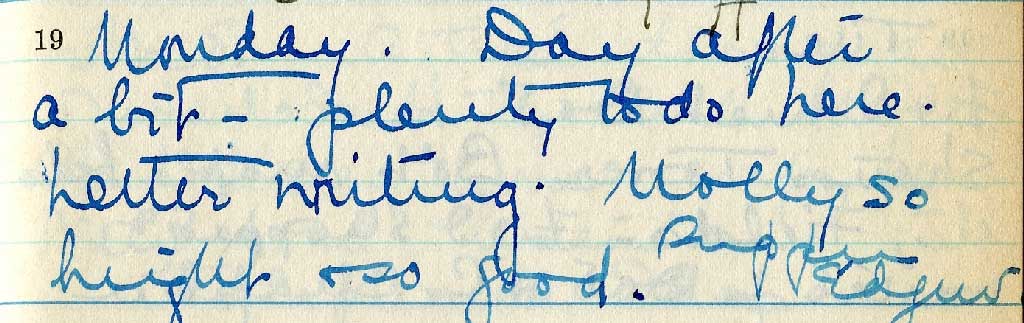 19 Monday. Day after
a bit - plenty to do here.
Letter writing. Molly so
bright + so good. Supper
Edgar